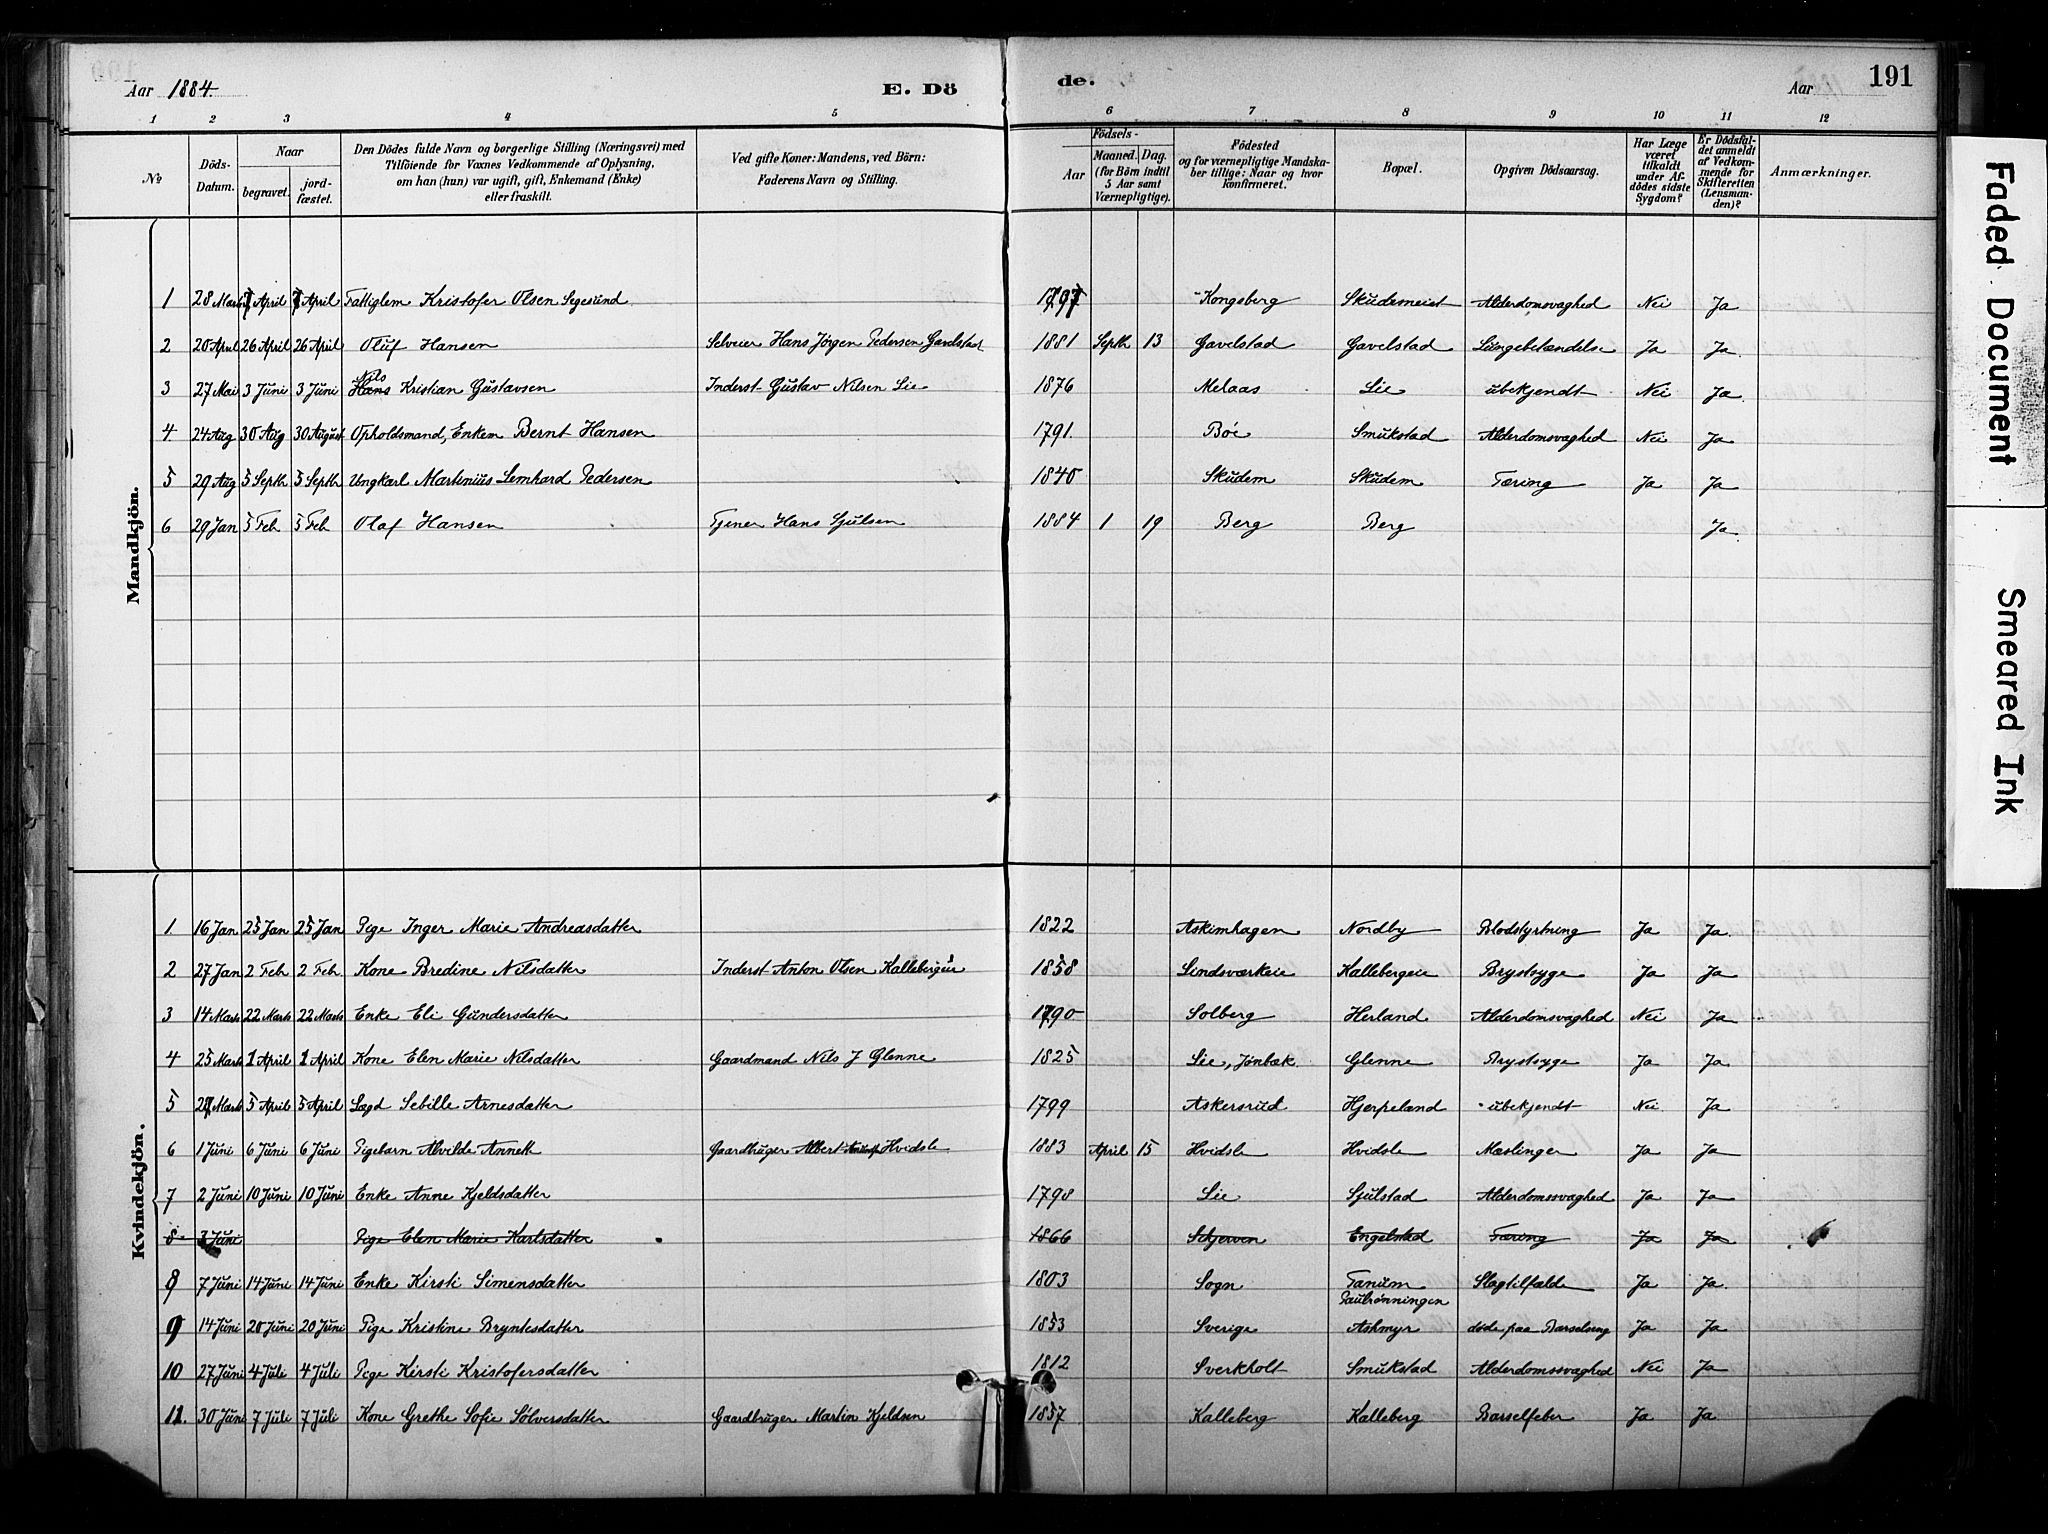 Aar 1884. E. Dö de. Aar 191
1 2 3 4 5 6 7 8 9 10 11 12
No Döds-Datum. Naar begravet. jord-fæstet. Den Dödes fulde Navn og borgerlige Stilling (Næringsvei) med Tilföiende for Voxnes Vedkommende af Oplysning, om han (hun) var ugift, gift, Enkemand (Enke) eller fraskilt. Ved gifte Koner: Mandens, ved Börn: Faderens Navn og Stilling. Födsels- Aar Maaned. Dag. (for Börn indtil 5 Aar samt Værnepligtige). Födested og for værnepligtige Mandskaber tillige: Naar og hvor konfirmeret. Bopæl. Opgiven Dödsaarsag. Har Læge været tilkaldt under Afdödes sidste Sygdom? Er Dödsfaldet anmeldt af Vedkommende for Skifteretten (Lensmanden)? Anmærkninger.
Mandkjön.
1 28 Marts 7 April 7 April Fattiglem Kristofer Olsen Segesund 1797 Kongsberg Skudemeiet Alderdomsvaghed Nei Ja
2 20 April 26 April 26 April Oluf Hansen Selveier Hans Jörgen Pedersen Gavelstad 1881 Septb 13 Gavelstad Gavelstad Lungebetændelse Ja Ja
3 27 Mai 3 Juni 3 Juni Nils Hans Kristian Gustavsen Inderst Gustav Nilsen Lie 1876 Melaas Lie ubekjendt Nei Ja
4 24 Aug 30 Aug 30 August Opholdsmand, Enkem Bernt Hansen 1791. Böe Smukstad Alderdomsvaghed Nei Ja
5 29 Aug 5 Septb 5 Septb Ungkarl Martinius Lemhard Pedersen 1840 Skudem Skudem Tæring Ja Ja
6 29 Jan 5 Feb. 5 Feb. Olaf Hansen Tjener Hans Sjulsen 1884 1 19 Berg Berg Ja
Kvindekjön.
1 16 Jan 25 Jan 25 Jan Pige Inger Marie Andreasdatter 1822 Askimhagen Nordby Blodstyrtning Ja Ja
2 27 Jan 2 Feb 2 Feb. Kone Bredine Nilsdatter Inderst Anton Olsen Kallebergeie 1858 Lindsværkeie Kallebergeie Brystsyge Ja Ja
3 14 Marts 22 Marts 22 Marts Enke Eli Gundersdatter 1790 Solberg Herland Alderdomsvaghed Nei Ja
4 25 Marts 1 April 1 April Kone Elen Marie Nilsdatter Gaardmand Nils J Glenne 1825 Lie, Jönbæk Glenne Brystsyge Ja Ja
5 Marts 5 April 5 April Lægd Sebille Arnesdatter 1799 Askersrud Hjerpeland ubekjendt Nei Ja
6 1 Juni 6 Juni 6 Juni Pigebarn Alvilde Annette Gaardbruger Albert Hvidsle 1883 April 15 Hvidsle Hvidsle Mæslinger Ja Ja
7 2 Juni 10 Juni 10 Juni Enke Anne Kjeldsdatter 1798 Lie Sjulstad Alderdomssvaghed Ja Ja
8 3 Juni Pige Elen Marie Karlsdatter 1866 Skjerven Engelstad Tæring Ja Ja
8 7 Juni 14 Juni 14 Juni Enke Kirsti Simensdatter 1803 Sogn Tanum Slagtilfælde Ja Ja.
9 14 Juni 20 Juni 20 Juni Pige Kristine Bryntesdatter 1853 Sverige Paulrönningen Askmyr döde paa Barselseng Ja Ja
10 27 Juni 4 Juli 4 Juli Pige Kirsti Kristofersdatter 1812 Sverkholt Smukstad Alderdomssvaghed Nei Ja
11. 30 Juni 7 Juli 7 Juli Kone Grethe Sofie Sölversdatter Gaardbruger Martin Kjeldsen 1857 Kalleberg Kalleberg Barselfeber Ja Ja
Faded Document
Smeared Ink